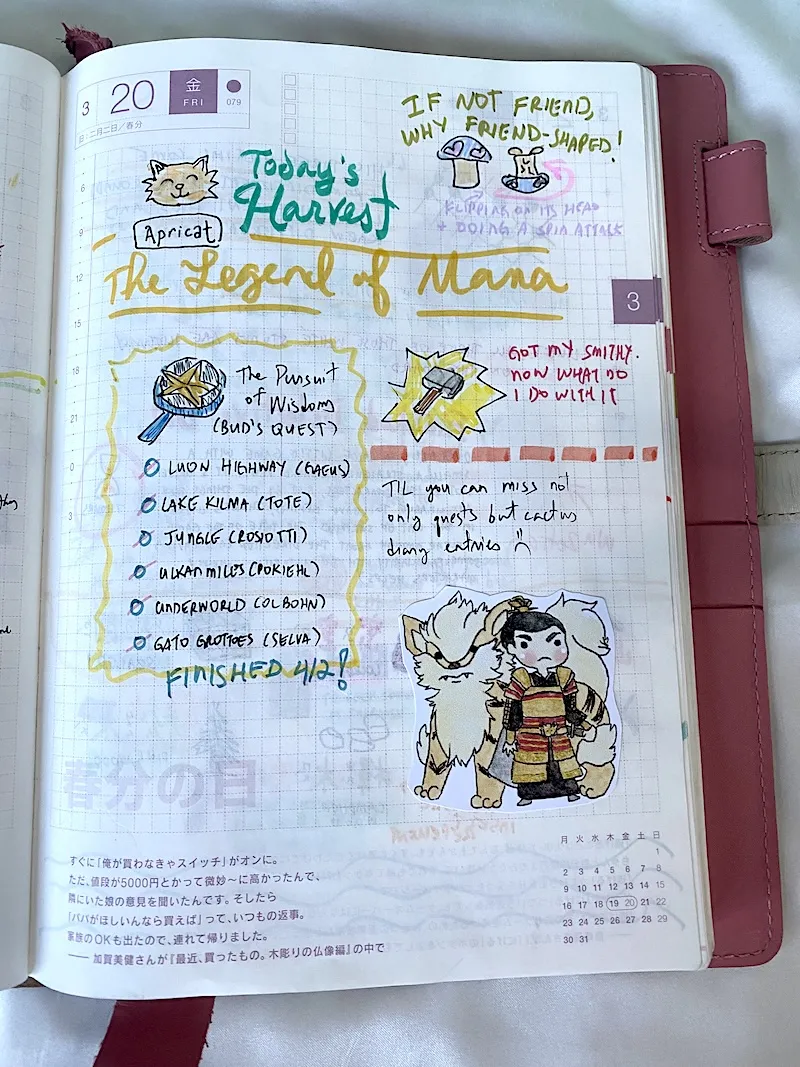 3 20 金 FRI 079
旧:二月二日/春分
IF NOT FRIEND,
WHY FRIEND-SHAPED!
Today's
Harvest
Apricat
FLIPPING ON ITS HEAD
+ DOING A SPIN ATTACK
The Legend of Mana
6
9
12
15
18
21
0
3
3
The Pursuit
of Wisdom
(BUD'S QUEST)
LUON HIGHWAY (GAEUS)
LAKE KILMA (TOTE)
JUNGLE (ROSIOTTI)
ULKAN MINES (POKIEHL)
UNDERWORLD (OLBOHN)
GATO GROTTOES (SELVA)
FINISHED 4/2!
GOT MY SMITHY.
NOW WHAT DO
I DO WITH IT
TIL you can miss not
only quests but cactus
diary entries
春分の日
すぐに「俺が買わなきゃスイッチ」がオンに。
ただ、値段が5000円とかって微妙〜に高かったんで、
隣にいた娘の意見を聞いたんです。そしたら
「パパがほしいんなら買えば」って、いつもの返事。
家族のOKも出たので、連れて帰りました。
—— 加賀美健さんが『最近、買ったもの。木彫りの仏像編』の中で
月 火 水 木 金 土 日
1
2 3 4 5 6 7 8
9 10 11 12 13 14 15
16 17 18 19 20 21 22
23 24 25 26 27 28 29
30 31